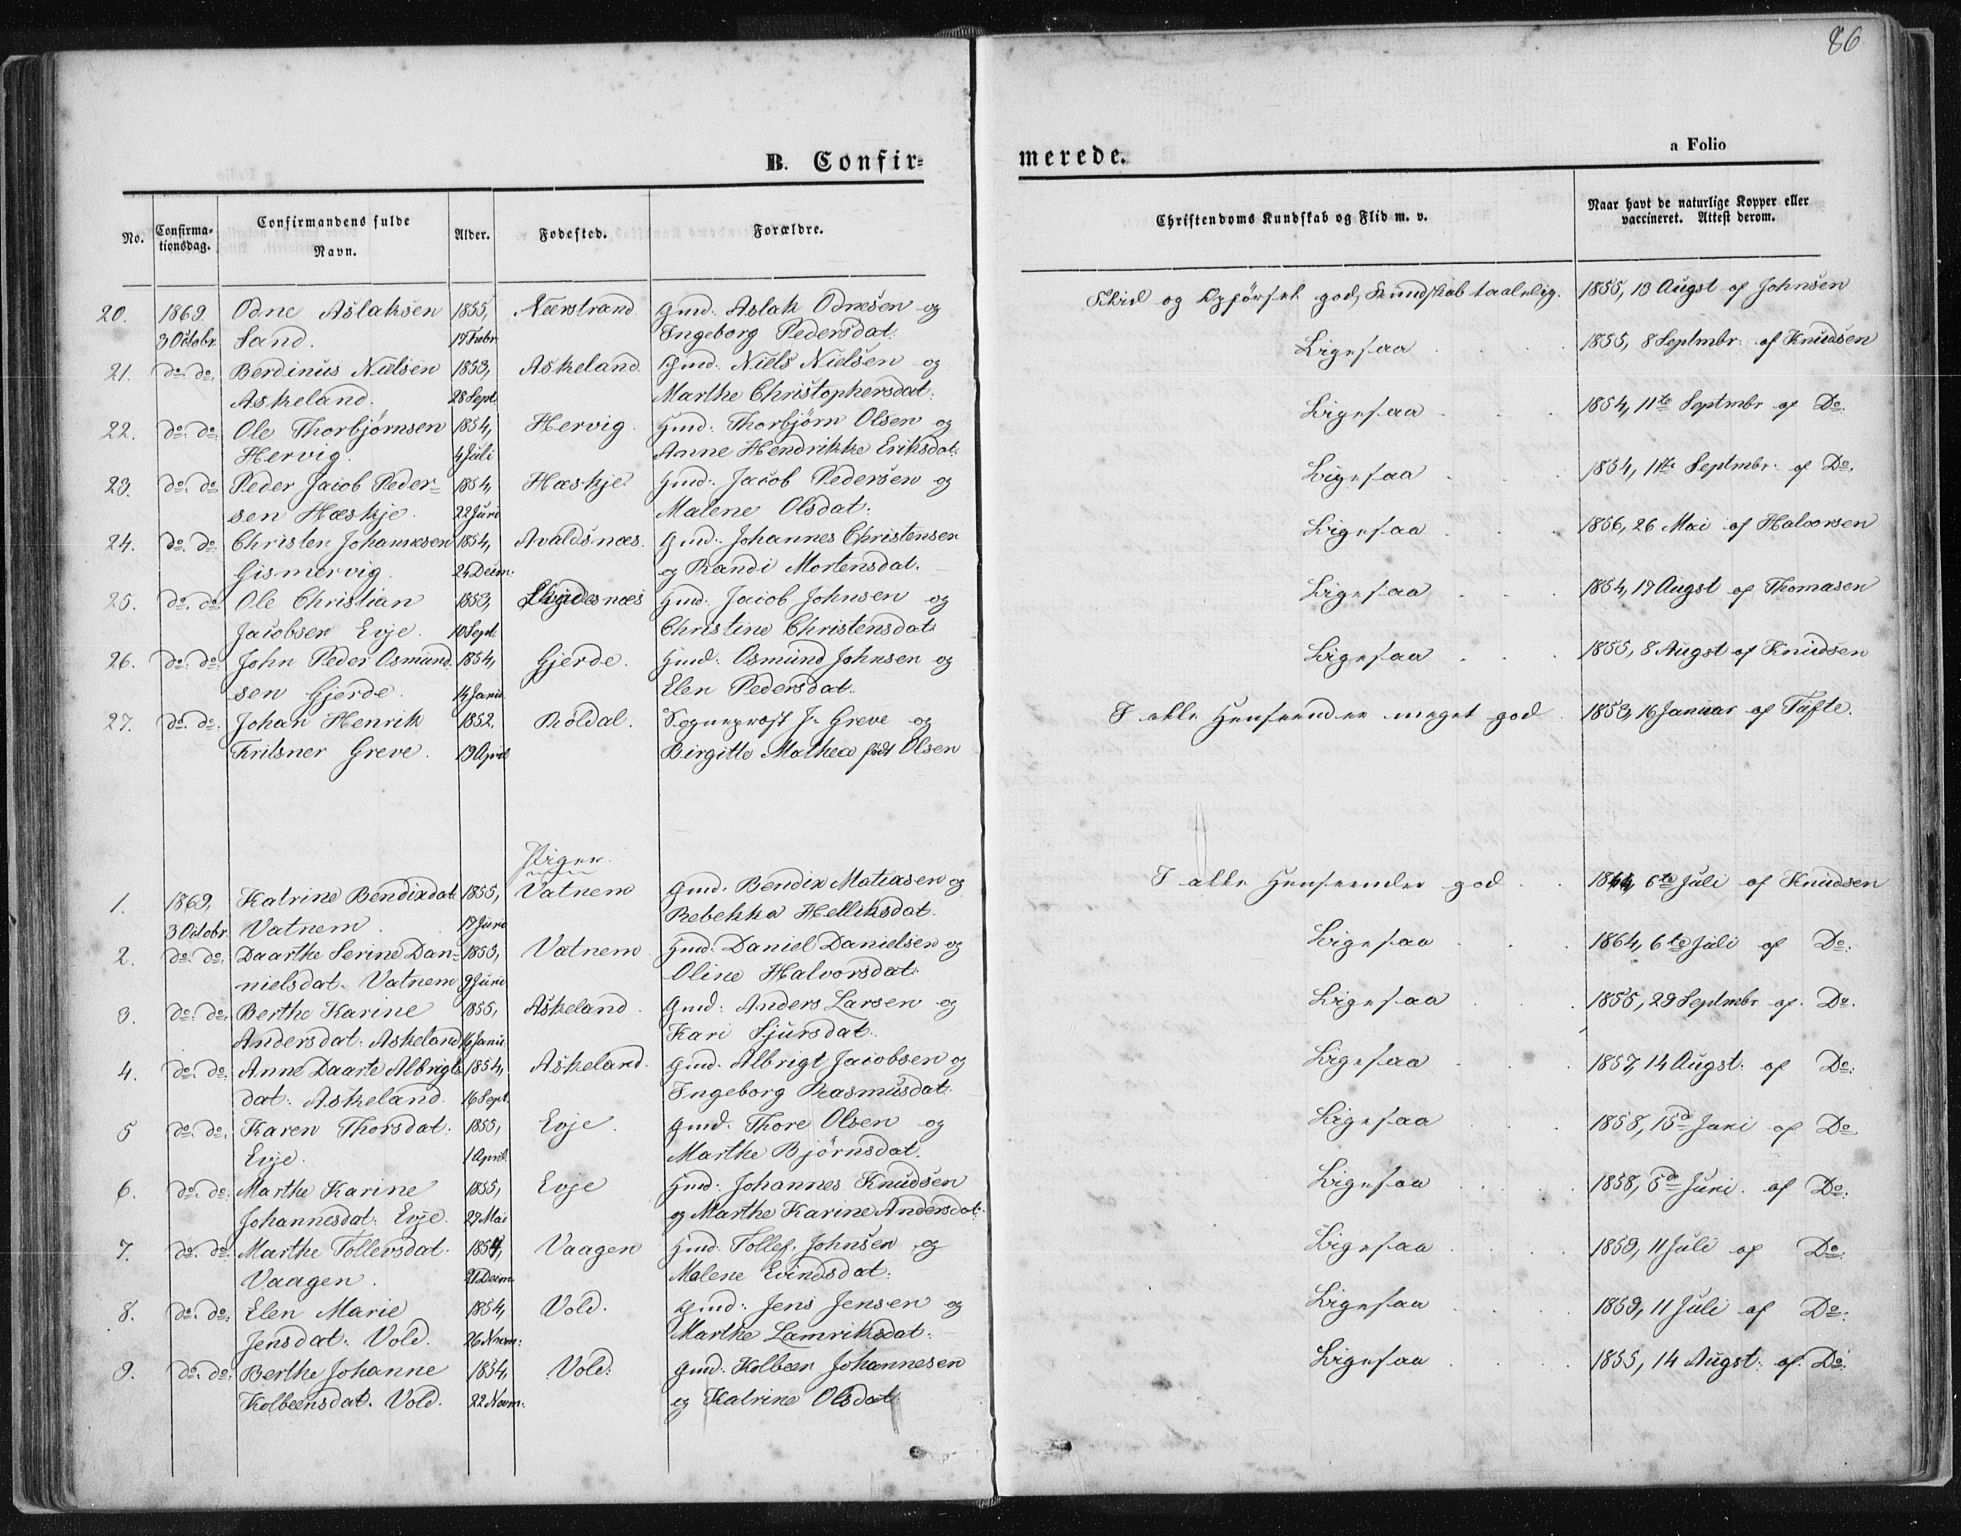 86
B. Confir=
merede.
a Folio
No. Confirma-tionsdag. Confirmandens fulde Navn. Alder. Fodested. Forældre. Christendoms Kundskab og Flid m. v. Naar havt de naturlige Kopper eller vaccineret. Attest derom.
20. 1869. Odne Aslaksen 1855, Nærstrand Gmd. Aslak Odnesen og Flid og Opførsel god, Kundskab taalelig. 1855, 13 Augst af Johnsen
3 Octobr. Sand. 17 Febr Ingeborg Pedersdat.
21. do. do. Berdinus Nielsen 1853, Askeland Gmd. Niels Nielsen og Ligesaa 1855, 8 Septmbr. af Knudsen
Askeland. 28 Sept Marthe Christophersdat.
22. do. do. Ole Thorbjørnsen 1854, Hervig. Gmd. Thorbjørn Olsen og Ligesaa 1854, 11te Septmbr af Do.
Hervig. 4 Juli Anne Hendrikke Eriksdat.
23. do. do Peder Jacob Peder= 1854, Hæskje Gmd. Jacob Pedersen og Ligesaa 1854, 11te Septmbr. af Do.
sen Hæskje. 22 Juni Malene Olsdat.
24. do. do. Christen Johannesen 1854, Avaldsnæs. Gmd. Johannes Christensen Ligesaa 1856, 26 Mai af Halvorsen
Gismervig. 24 Decm. og Randi Mortensdat.
25. do. do. Ole Christian 1853, Skudesnæs Gmd. Jacob Johnsen og Ligesaa 1854, 17 Augst af Thomasen
Jacobsen Evje. 10 Sept. Christine Christensdat.
26. do. do. John Peder Osmund 1854, Gjerde. Gmd. Osmund Johnsen og Ligesaa 1855, 8 Augst af Knudsen
sen Gjerde. 14 Janu. Elen Pedersdat.
27. do. do. Johan Henrik 1852, Röldal. Sogneprest J. Greve og I alle Henseender meget god 1853, 16 Januar af Tofte.
Greve. 13 April Birgitte Mathea født Olsen
Piger.
1. 1869, Katrine Bendixdat 1855, Vatnem Gmd. Bendix Matiasen og I alle Henseender god 6te Juli af Knudsen
3 Octobr. Vatnem. 17 Juni Rebekka Helliksdat.
2. do. do. Daarthe Serine Dan= 1855, Vatnem Gmd. Daniel Danielsen og Ligesaa 1864, 6te Juli af Do.
nielsdat. Vatnem 9 Juni Oline Halvorsdat.
3. do. do. Berthe Karine 1855, Askeland. Gmd. Anders Larsen og Ligesaa 1855, 29 Septmbr af. Do.
Andersdat. Askeland 16 Janu. Kari Sjursdat.
4. do. do. Anne Daarte Albrigts 1854, Askeland. Gmd. Albrigt Jacobsen og Ligesaa 1857, 14 Augst. af Do.
dat. Askeland. 16 Sept. Ingeborg Rasmusdat.
5 do. do. Karen Thorsdat. 1855, Evje. Gmd. Thore Olsen og Ligesaa 1858, 15de Juni af Do
Evje. 1 April. Marthe Bjørnsdat.
6. do. do. Marthe Karine 1855, Evje Gmd. Johannes Knudsen Ligesaa 1858, Juni. af Do.
Johannesdat. Evje. 27 Mai og Marthe Karine Andersdat.
7. do. do. Marthe Tollevsdat. 1854, Vaagen Gmd. Tollef. Johnsen og Ligesaa 1859, 11 Juli af Do.
Vaagen. 21 Decm Malene Evindsdat.
8. do. do. Elen Marie 1854, Vold. Gmd. Jens Jensen og Ligesaa 1859, 11 Juli af Do.
Jensdat. Vold. 26 Novm. Marthe Lamriksdat.
9. do. do. Berthe Johanne 1854, Vold. Gmd. Kolbeen Johannesen Ligesaa 1855, 14 Augst. af Do
Kolbeensdat. Vold. 22 Novm. og Katrine Olsdat.